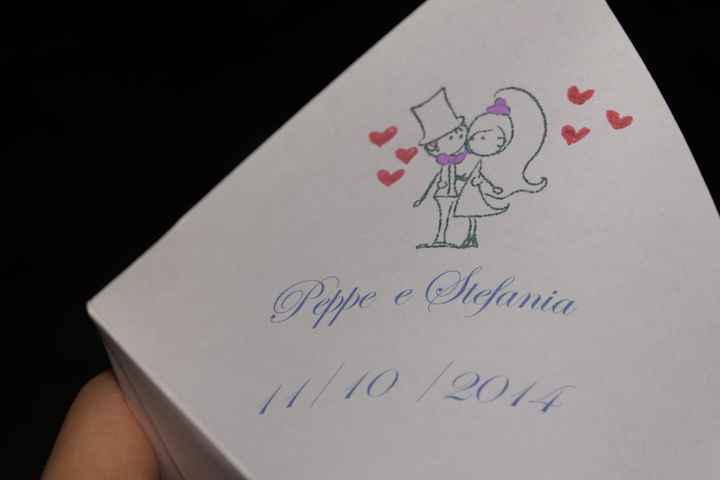 Peppe e Stefania
11/10/2014